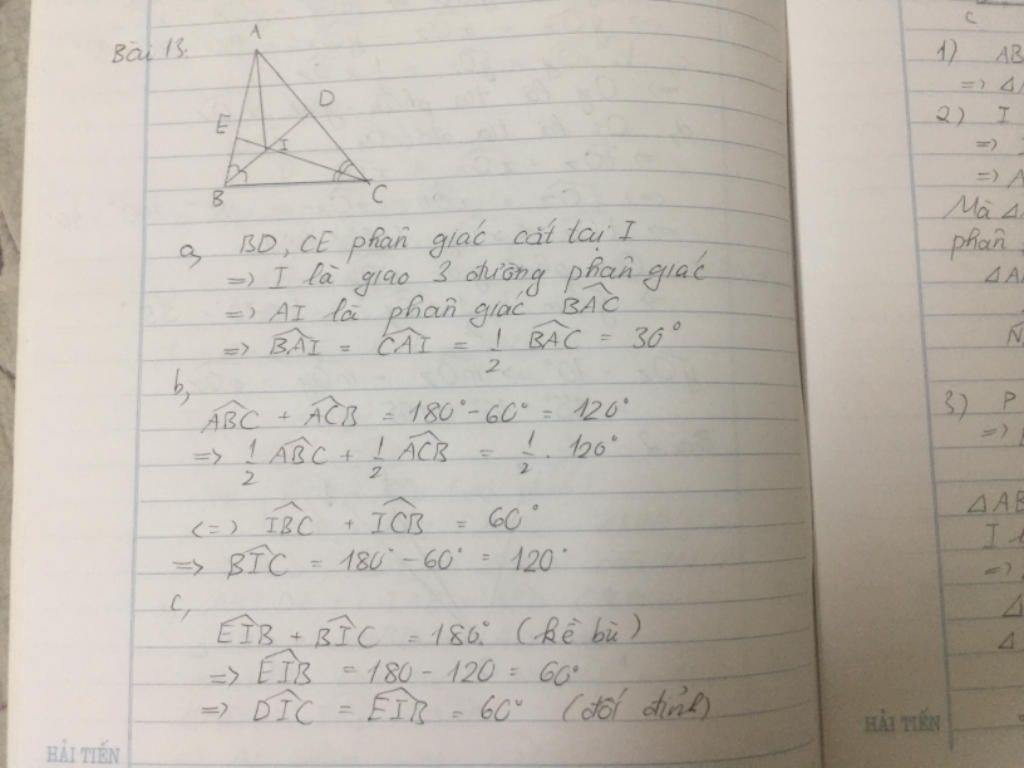 Bài 13.
A
D
E
I
B
C
a, BD, CE phân giác cắt tại I
=> I là giao 3 đường phân giác
=> AI là phân giác BAC
=> BAI = CAI = 1/2 BAC = 30°
b,
ABC + ACB = 180° - 60° = 120°
=> 1/2 ABC + 1/2 ACB = 1/2 . 120°
<=> IBC + ICB = 60°
=> BIC = 180° - 60° = 120°
c,
EIB + BIC = 180° (kề bù)
=> EIB = 180 - 120 = 60°
=> DIC = EIB = 60° (đối đỉnh)
HẢI TIẾN
C
1) AB
=> Δ
2) I
=>
=> A
Mà Δ
phân
ΔA
3) P
=>
ΔAB
I
=>
Δ
Δ
HẢI TIẾN